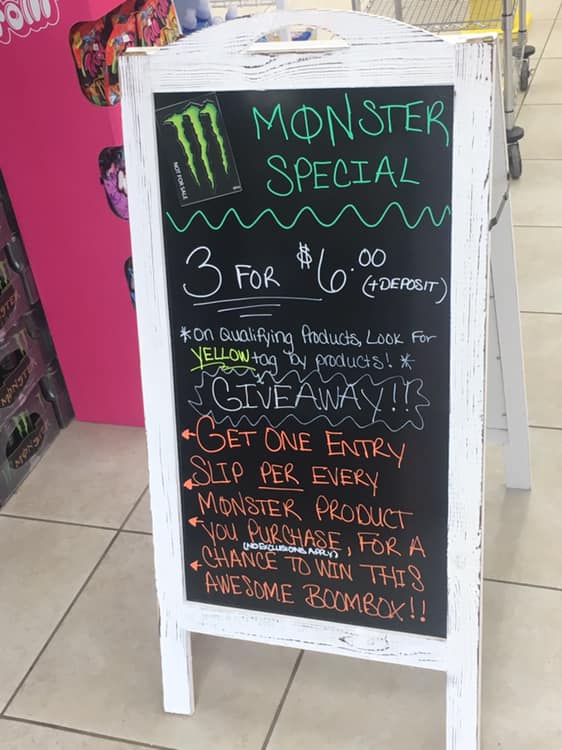 MONSTER
SPECIAL
NOT FOR SALE
3 FOR $6.00
(+DEPOSIT)
*On Qualifying Products, Look For
YELLOW tag by products! *
GIVEAWAY!!
GET ONE ENTRY
SLIP PER EVERY
MONSTER PRODUCT
YOU PURCHASE, FOR A
(NO EXCLUSIONS APPLY)
CHANCE TO WIN THIS
AWESOME BOOMBOX!!
MONSTER
MONSTER